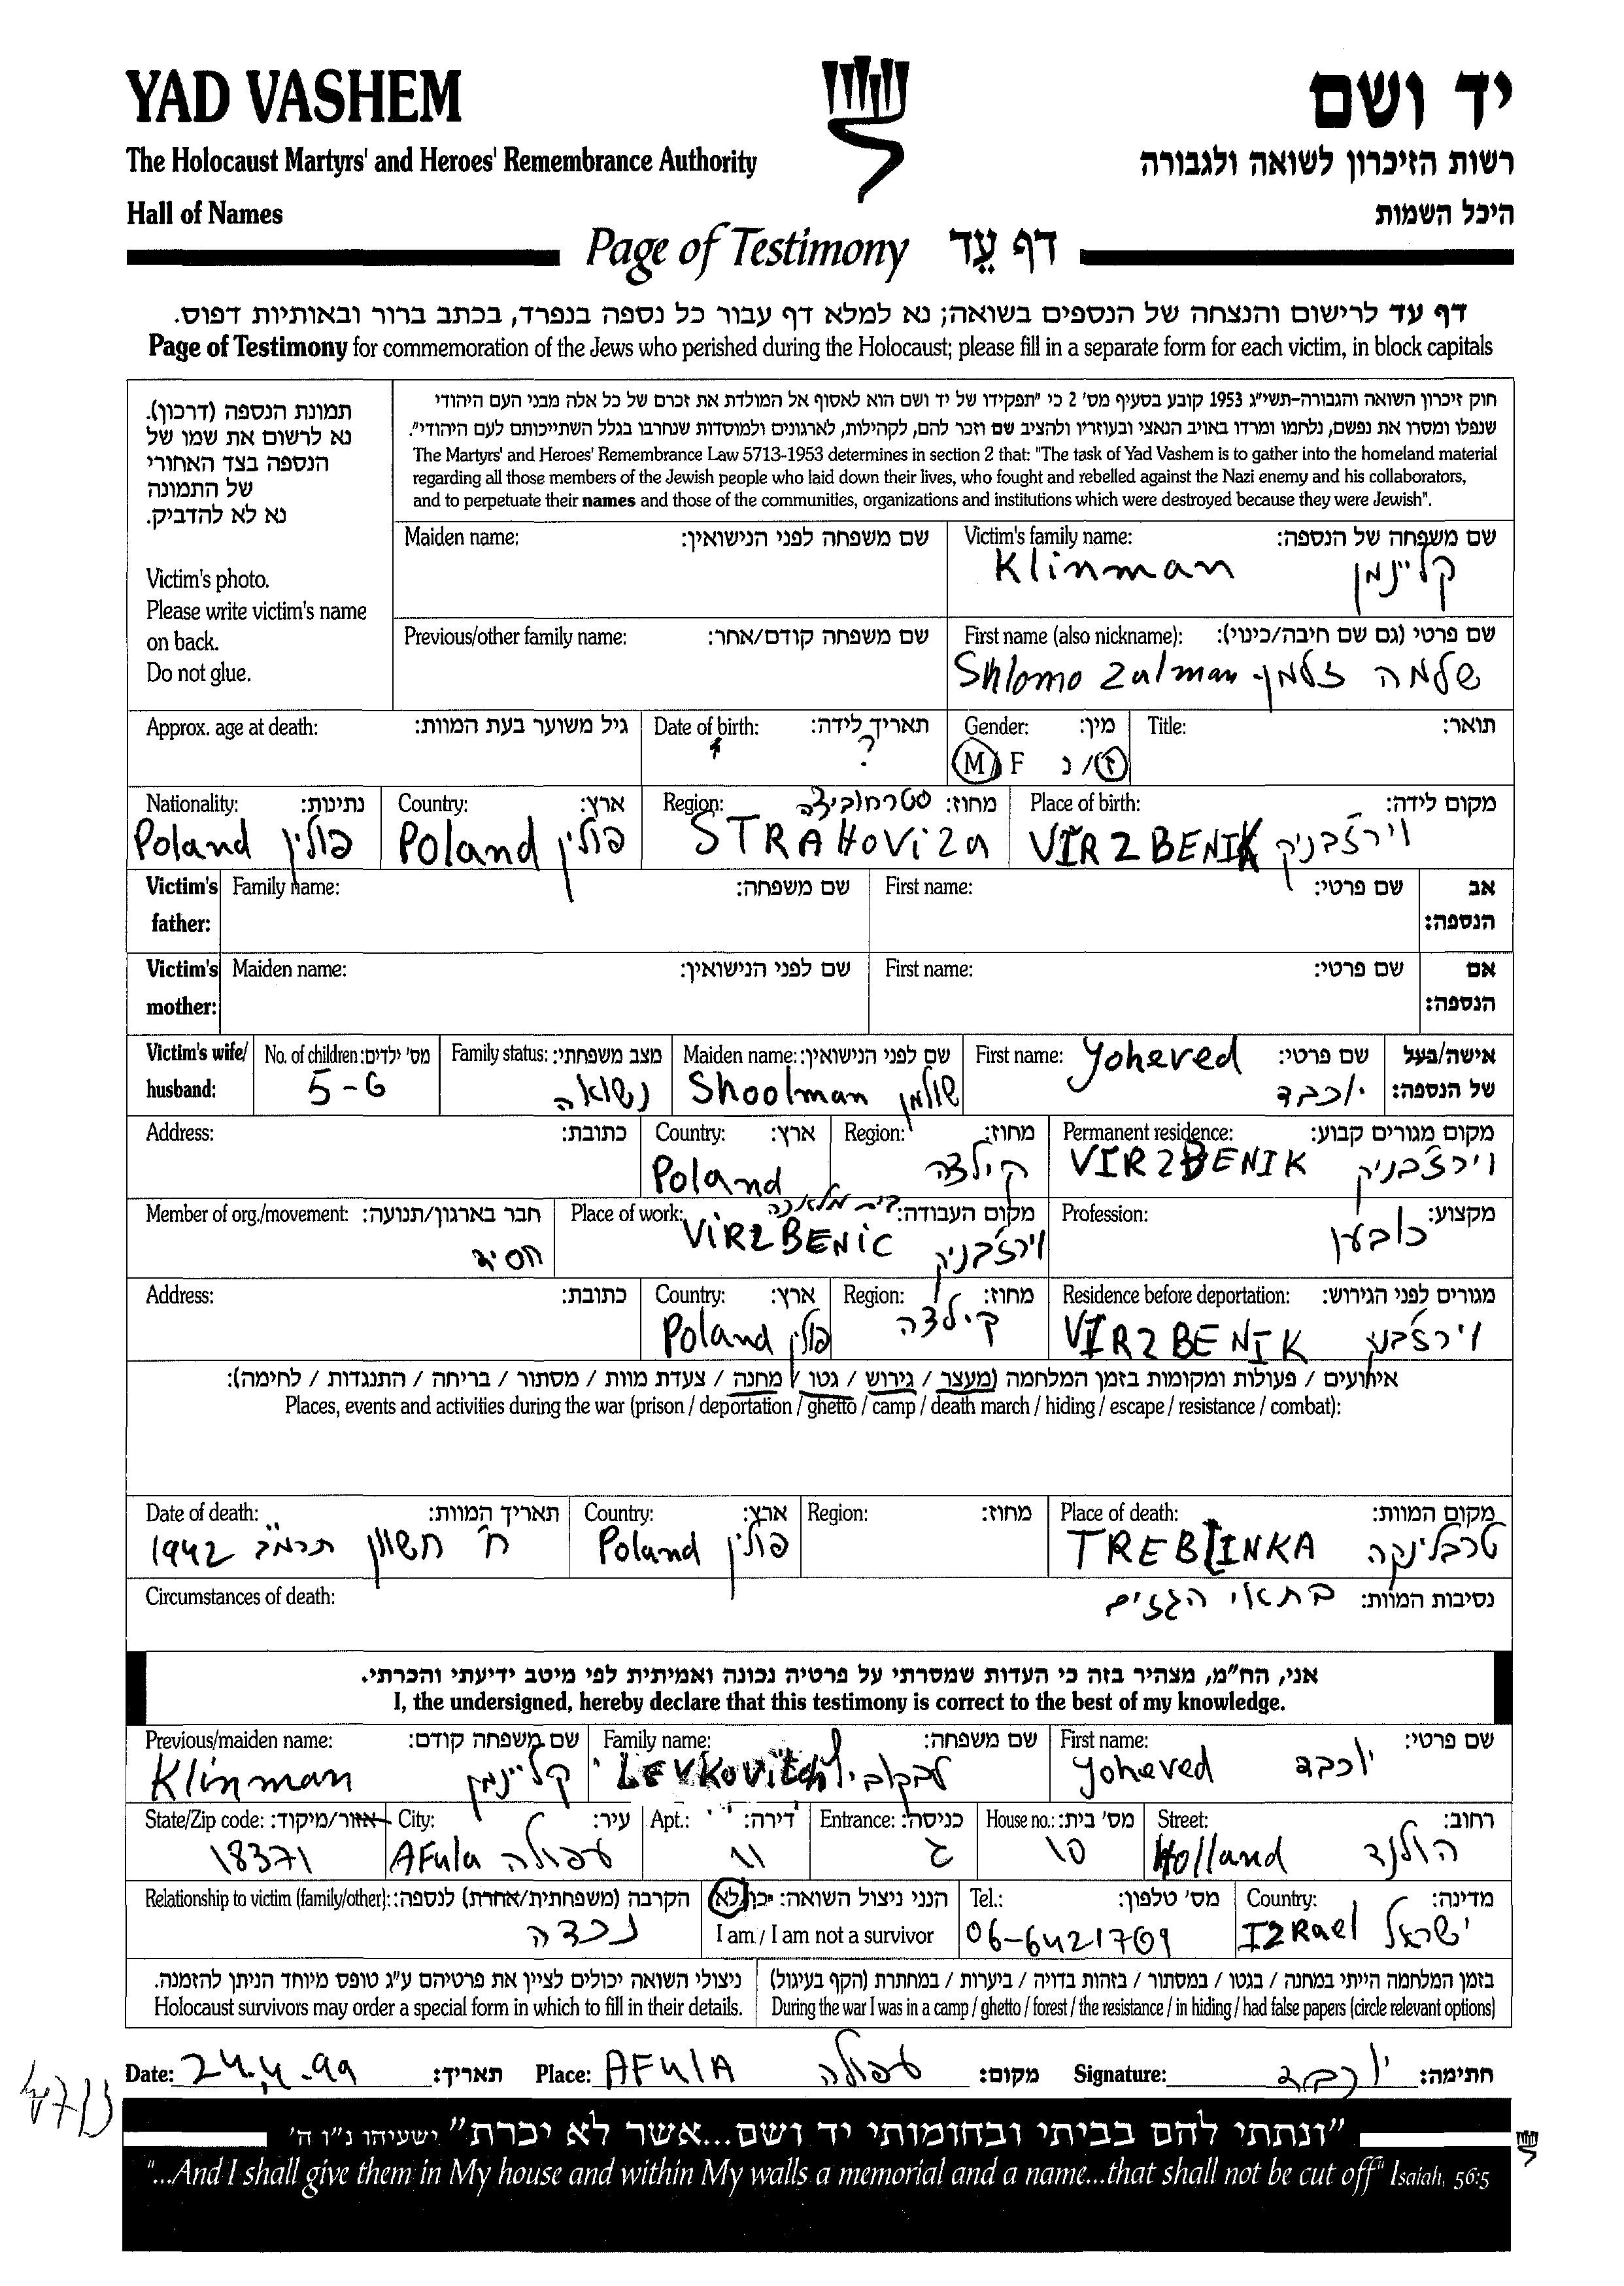 YAD VASHEM
יד ושם
The Holocaust Martyrs' and Heroes' Remembrance Authority
רשות הזיכרון לשואה ולגבורה
Hall of Names
היכל השמות
Page of Testimony דף עֵד
דף עד לרישום והנצחה של הנספים בשואה; נא למלא דף עבור כל נספה בנפרד, בכתב ברור ובאותיות דפוס.
Page of Testimony for commemoration of the Jews who perished during the Holocaust; please fill in a separate form for each victim, in block capitals
תמונת הנספה (דרכון).
נא לרשום את שמו של
הנספה בצד האחורי
של התמונה
נא לא להדביק.
Victim's photo.
Please write victim's name
on back.
Do not glue.
חוק זיכרון השואה והגבורה-תשי"ג 1953 קובע בסעיף מס' 2 כי "תפקידו של יד ושם הוא לאסוף אל המולדת את זכרם של כל אלה מבני העם היהודי
שנפלו ומסרו את נפשם, נלחמו ומרדו באויב הנאצי ובעוזריו ולהציב שם וזכר להם, לקהילות, לארגונים ולמוסדות שנחרבו בגלל השתייכותם לעם היהודי".
The Martyrs' and Heroes' Remembrance Law 5713-1953 determines in section 2 that: "The task of Yad Vashem is to gather into the homeland material
regarding all those members of the Jewish people who laid down their lives, who fought and rebelled against the Nazi enemy and his collaborators,
and to perpetuate their names and those of the communities, organizations and institutions which were destroyed because they were Jewish".
Maiden name: שם משפחה לפני הנישואין:
Victim's family name: שם משפחה של הנספה:
Klinman קליינמן
Previous/other family name: שם משפחה קודם/אחר:
First name (also nickname): שם פרטי (גם שם חיבה/כינוי):
Shlomo Zalman שלמה זלמן
Approx. age at death: גיל משוער בעת המוות:
Date of birth: תאריך לידה:
?
Gender: מין:
M / F ז / נ
Title: תואר:
Nationality: נתינות:
Poland פולין
Country: ארץ:
Poland פולין
Region: מחוז: סטרחוביצה
STRAHOVIZA
Place of birth: מקום לידה:
VIRZBENIK וירזבניק
Victim's father: Family name: שם משפחה: First name: שם פרטי: אב הנספה:
Victim's mother: Maiden name: שם לפני הנישואין: First name: שם פרטי: אם הנספה:
Victim's wife/husband: No. of children: מס' ילדים: Family status: מצב משפחתי: Maiden name: שם לפני הנישואין: First name: שם פרטי: אישה/בעל של הנספה:
5-6 נשואה Shoolman שולמן Yoheved יוכבד
Address: כתובת: Country: ארץ: Region: מחוז: Permanent residence: מקום מגורים קבוע:
Poland קילצה VIRZBENIK וירזבניק
Member of org./movement: חבר בארגון/תנועה: Place of work: מקום העבודה: Profession: מקצוע:
חסיד בית מלאכה VIRZBENIC וירזבניק כובען
Address: כתובת: Country: ארץ: Region: מחוז: Residence before deportation: מגורים לפני הגירוש:
Poland פולין קילצה VIRZBENIK
אירועים / פעולות ומקומות בזמן המלחמה (מעצר / גירוש / גטו / מחנה / צעדת מוות / מסתור / בריחה / התנגדות / לחימה):
Places, events and activities during the war (prison / deportation / ghetto / camp / death march / hiding / escape / resistance / combat):
Date of death: תאריך המוות: Country: ארץ: Region: מחוז: Place of death: מקום המוות:
1942 ח' חשוון Poland פולין TREBLINKA טרבלינקה
Circumstances of death: נסיבות המוות: בתאי הגזים
אני, הח"מ, מצהיר בזה כי העדות שמסרתי על פרטיה נכונה ואמיתית לפי מיטב ידיעתי והכרתי.
I, the undersigned, hereby declare that this testimony is correct to the best of my knowledge.
Previous/maiden name: שם משפחה קודם: Family name: שם משפחה: First name: שם פרטי:
Klinman קליינמן LEVKOVITCH לבקוביץ Yoheved יוכבד
State/Zip code: אזור/מיקוד: City: עיר: Apt.: דירה: Entrance: כניסה: House no.: מס' בית: Street: רחוב:
18371 AFula עפולה 11 ג 10 Holland הולנד
Relationship to victim (family/other): הקרבה (משפחתית/אחרת) לנספה: הנני ניצול השואה: כן/לא Tel.: מס' טלפון: Country: מדינה:
נכדה I am / I am not a survivor 06-6421709 IZRael ישראל
ניצולי השואה יכולים לציין את פרטיהם ע"ג טופס מיוחד הניתן להזמנה.
Holocaust survivors may order a special form in which to fill in their details.
בזמן המלחמה הייתי במחנה / בגטו / במסתור / בזהות בדויה / ביערות / במחתרת (הקף בעיגול)
During the war I was in a camp / ghetto / forest / the resistance / in hiding / had false papers (circle relevant options)
Date: 24.4.99 תאריך: Place: AFulA עפולה מקום: Signature: יוכבד חתימה:
"ונתתי להם בביתי ובחומותי יד ושם...אשר לא יכרת" ישעיהו נ"ו ה'
"...And I shall give them in My house and within My walls a memorial and a name...that shall not be cut off" Isaiah, 56:5